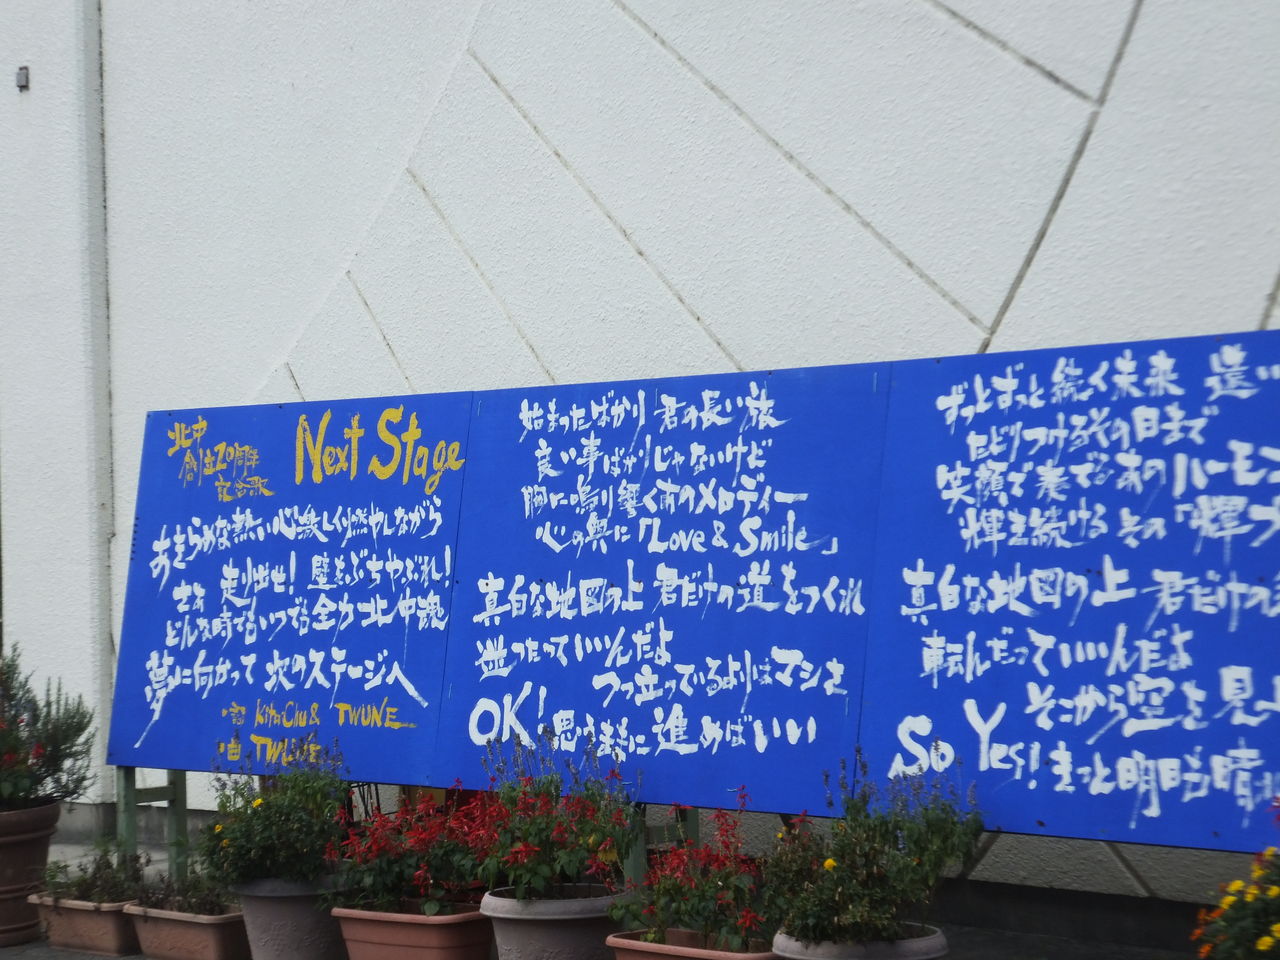 北中
創立20周年
記念歌
Next Stage
あきらめな熱い心楽しく燃やしながら
さぁ 走り出せ! 壁をぶちやぶれ!
どんな時でもいつでも全力北中魂
夢に向かって 次のステージへ
詞 KitaChu & TWUNE
曲 TWUNE
始まったばかり 君の長い旅
良い事ばかりじゃないけど
胸に鳴り響くあのメロディー
心の奥に「Love & Smile」
真白な地図の上 君だけの道をつくれ
迷ったっていいんだよ
つっ立っているよりはマシさ
OK! 思うままに進めばいい
ずっとずっと続く未来 遠い
たどりつけるその日まで
笑顔で奏でるあのハーモニ
輝き続ける その「輝
真白な地図の上 君だけの
転んだっていいんだよ
そこから空を見
So Yes! きっと明日も晴